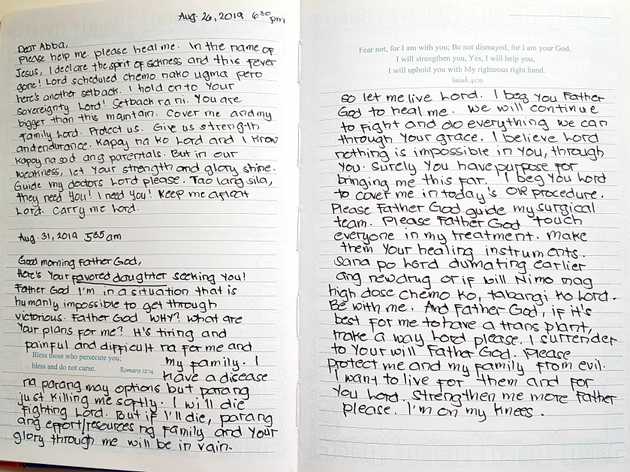 Aug. 26, 2019 6:30 pm
Dear Abba,
Please help me please heal me. In the name of
Jesus, I declare the spirit of sickness and this fever
gone! Lord scheduled chemo nako ugma pero
here's another setback. I hold on to Your
sovereignty Lord! Setback ra ni. You are
bigger than this mountain. Cover me and my
family Lord. Protect us. Give us strength
and endurance. Kapoy na ko Lord and I know
kapoy na sad ang parentals. But in our
weakness, let Your strength and glory shine.
Guide my doctors Lord please. Tao lang sila,
they need You! I need You! Keep me afloat
Lord. Carry me Lord.
Aug. 31, 2019 5:35 am
Good morning Father God,
Here's Your favored daughter seeking You!
Father God I'm in a situation that is
humanly impossible to get through
victorious. Father God WHY? What are
Your plans for me? It's tiring and
painful and difficult na for me and
my family. I
have a disease
Bless those who persecute you;
bless and do not curse. Romans 12:14
na parang may options but parang
just killing me softly. I will die
fighting Lord. But if I'll die, parang
ang effort/resources ng family and Your
glory through me will be in vain.
Fear not, for I am with you; Be not dismayed, for I am your God.
I will strengthen you, Yes, I will help you,
I will uphold you with My righteous right hand.
Isaiah 41:10
So let me live Lord. I beg You Father
God to heal me. We will continue
to fight and do everything we can
through Your grace. I believe Lord
nothing is impossible in You, through
You. Surely You have purpose for
bringing me this far. I beg You Lord
to cover me in today's OR procedure.
Please Father God guide my surgical
team. Please Father God touch
everyone in my treatment. Make
them Your healing instruments.
Sana po Lord dumating earlier
ang new drug or if will Nimo mag
high dose chemo ko, tabangi ko Lord.
Be with me. And Father God, if it's
best for me to have a transplant,
make a way Lord please. I surrender
to Your will Father God. Please
protect me and my family from evil.
I want to live for them and for
You Lord. Strengthen me more Father
please. I'm on my knees.